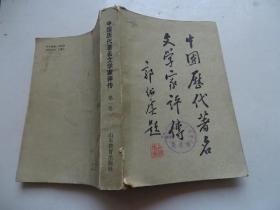 中国歷代著名
文学家评傳
郭紹虞题
中国历代著名文学家评传
第一卷
山东教育出版社